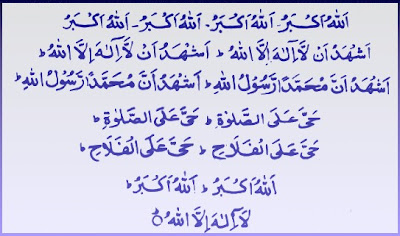 اَللهُ اَكْبَرُ۔ اَللهُ اَكْبَرُ۔ اَللهُ اَكْبَرُ۔ اَللهُ اَكْبَرُ
اَشْهَدُ اَنْ لَّآ اِلٰهَ اِلَّا اللهُ ؕ اَشْهَدُ اَنْ لَّآ اِلٰهَ اِلَّا اللهُ ؕ
اَشْهَدُ اَنَّ مُحَمَّدًا رَّسُوْلُ اللهِ ؕ اَشْهَدُ اَنَّ مُحَمَّدًا رَّسُوْلُ اللهِ ؕ
حَیَّ عَلَی الصَّلٰوةِ ؕ حَیَّ عَلَی الصَّلٰوةِ ؕ
حَیَّ عَلَی الْفَلَاحِ ؕ حَیَّ عَلَی الْفَلَاحِ ؕ
اَللهُ اَكْبَرُ ؕ اَللهُ اَكْبَرُ ؕ
لَآ اِلٰهَ اِلَّا اللهُ ؕ